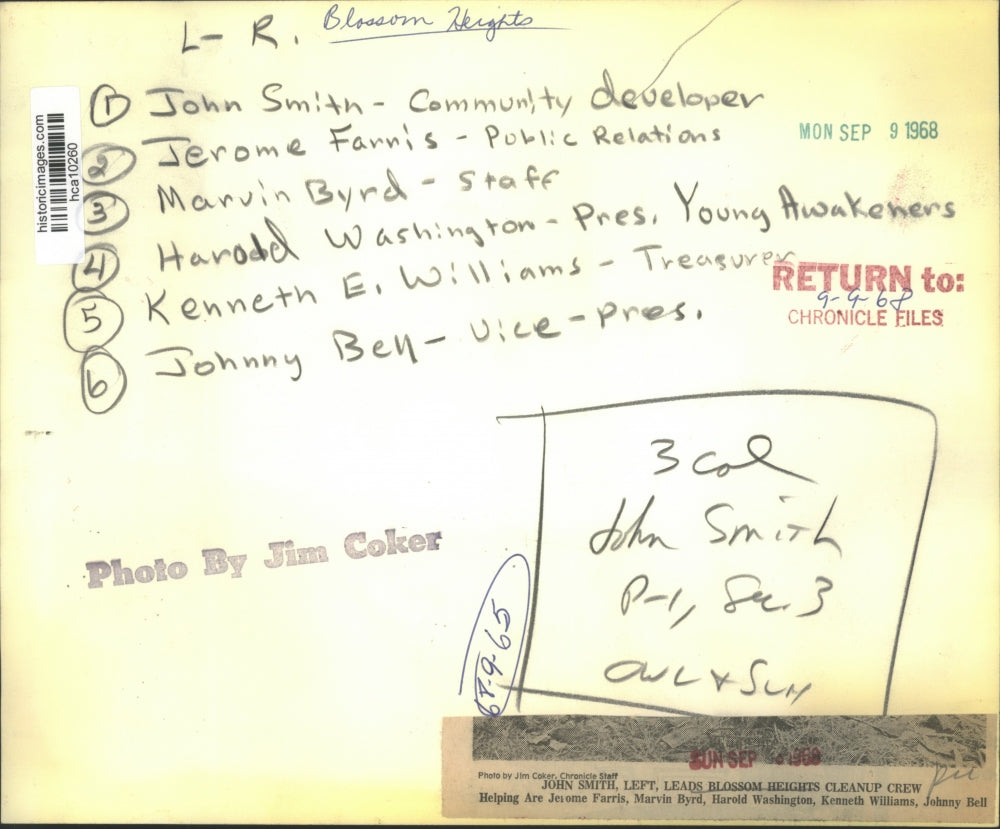 L - R. Blossom Heights
① John Smith - Community developer
② Jerome Farris - Public Relations
③ Marvin Byrd - Staff
④ Harodd Washington - Pres. Young Awakeners
⑤ Kenneth E. Williams - Treasurer
⑥ Johnny Bell - Vice - pres.
historicimages.com
hca10260
MON SEP 9 1968
RETURN to:
9-9-68
CHRONICLE FILES
3 col
John Smith
P-1, Sec. 3
OWL + SUN
Photo By Jim Coker
68-9-65
SUN SEP 1968
Photo by Jim Coker, Chronicle Staff
JOHN SMITH, LEFT, LEADS BLOSSOM HEIGHTS CLEANUP CREW
Helping Are Jerome Farris, Marvin Byrd, Harold Washington, Kenneth Williams, Johnny Bell